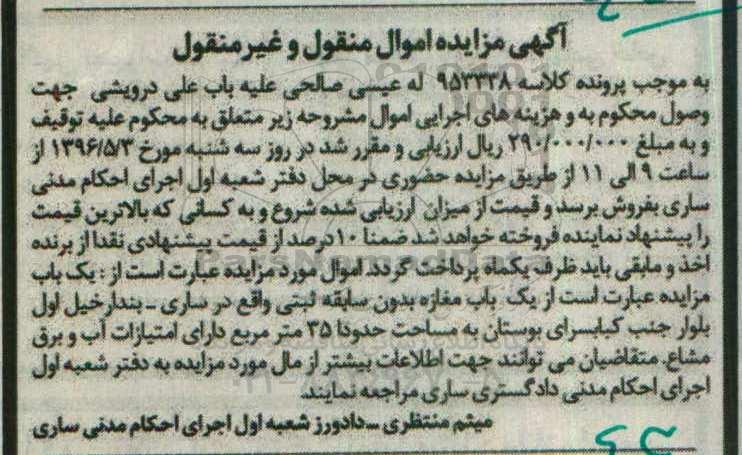 آگهی مزایده اموال منقول و غیر منقول
به موجب پرونده کلاسه ۹۵۳۳۳۸ له عیسی صالحی علیه باب علی درویشی جهت
وصول محکوم به و هزینه های اجرایی اموال مشروحه زیر متعلق به محکوم علیه توقیف
و به مبلغ ۲۹۰/۰۰۰/۰۰۰ ریال ارزیابی و مقرر شد در روز سه شنبه مورخ ۱۳۹۶/۵/۳ از
ساعت ۹ الی ۱۱ از طریق مزایده حضوری در محل دفتر شعبه اول اجرای احکام مدنی
ساری بفروش برسد و قیمت از میزان ارزیابی شده شروع و به کسانی که بالاترین قیمت
را پیشنهاد نماینده فروخته خواهد شد ضمنا ۱۰ درصد از قیمت پیشنهادی نقدا از برنده
اخذ و مابقی باید ظرف یکماه پرداخت گردد. اموال مورد مزایده عبارت است از : یک باب
مزایده عبارت است از یک باب مغازه بدون سابقه ثبتی واقع در ساری - بندارخیل اول
بلوار جنب کبابسرای بوستان به مساحت حدودا ۳۵ متر مربع دارای امتیازات آب و برق
مشاع. متقاضیان می توانند جهت اطلاعات بیشتر از مال مورد مزایده به دفتر شعبه اول
اجرای احکام مدنی دادگستری ساری مراجعه نمایند.
میثم منتظری - دادورز شعبه اول اجرای احکام مدنی ساری
ParsNamadData